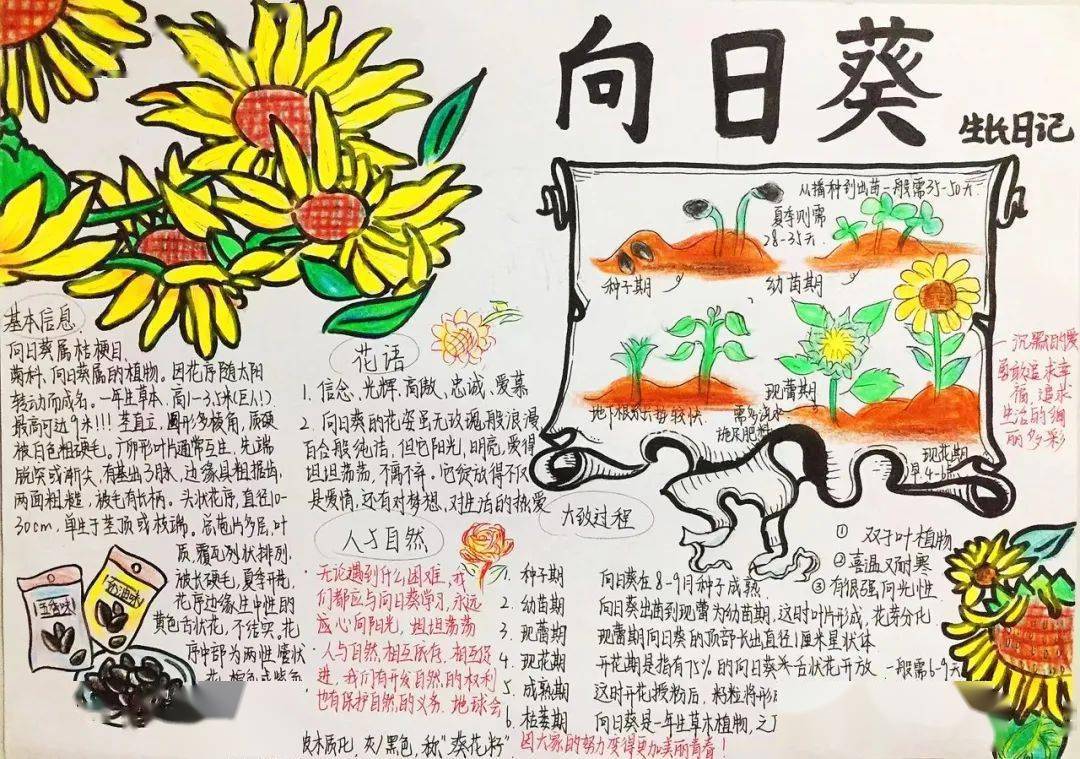 向日葵
生长日记
从播种到出苗一般需35-50天.
夏季则需
28-35天.
种子期
幼苗期
地下根系生长较快
需多浇水
施足肥料
现蕾期
现花期
沉默的爱
勇敢追求幸
福,追求
生活的绚
丽多彩
基本信息
向日葵属桔梗目,
菊科、向日葵属的植物。因花序随太阳
转动而成名。一年生草本,高1-3.5米(巨人!)
最高可达9米!!! 茎直立,圆形多棱角,质硬
被白色粗硬毛。广卵形叶片通常互生,先端
锐突或渐尖,有基出3脉,边缘具粗锯齿,
两面粗糙,被毛有长柄。头状花序,直径10-
30cm,单生于茎顶或枝端。总苞片多层,叶
质,覆瓦状排列,
被长硬毛,夏季开花,
花序边缘生中性的
黄色舌状花,不结实。花
序中部为两性管状
花,棕色或紫色
皮木质化,灰/黑色,称"葵花籽"
奶油味!
花语
1. 信念、光辉、高傲、忠诚、爱慕
2. 向日葵的花姿虽无玫瑰般浪漫
百合般纯洁,但它阳光,明亮,爱得
坦坦荡荡,不离不弃。它绽放得不仅
是爱情,还有对梦想、对生活的热爱
人与自然
无论遇到什么困难,我
们都应与向日葵学习,永远
心向阳光,坦坦荡荡
人与自然,相互依存,相互促
进,我们有开发自然的权利
也有保护自然的义务.地球会
因大家的努力变得更加美丽青春!
大致过程
1. 种子期 向日葵在8-9月种子成熟.
2. 幼苗期 向日葵出苗到现蕾为幼苗期,这时叶片形成,花芽分化.
3. 现蕾期 现蕾期向日葵的顶部长出直径1厘米星状体
4. 现花期 开花期是指有75%的向日葵头舌状花开放.一般需6-9天
5. 成熟期 这时开花授粉后,籽粒将形
6. 枯萎期 向日葵是一年生草木植物,
① 双子叶植物
② 喜温又耐寒
③ 有很强向光性